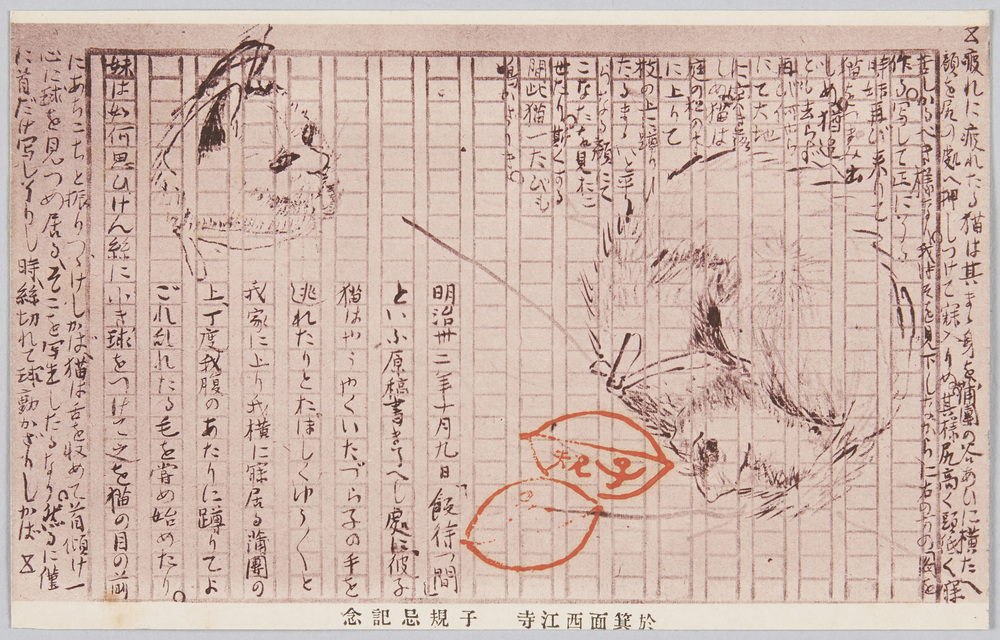 疲れに疲れたる猫は其まゝ身を蒲團の谷あひに横たへ
頭を尻の処へ押しつけて寐入りぬ其様尻高く頭低く寐
苦しかるべき様なり我は之を見下しながらに右の方の図を
写して正に
再び来りて
猫をつまみ出
しぬ猶追へ
ども去らず
再び何やら
にて大地
しぬ猫は
庭の松の木
に上りて
枝の上に蹲り
たるまゝいと平
らかなる顔にて
こなたを見
せたり
間此猫一たびも
鳴かざりき。
明治卅二年十月九日「飯待つ間」
といふ原稿書き了へし處に彼子
猫はやうやくいたづら子の手を
逃れたりとおぼしくゆう〱と
我家に上り我横に寐居る蒲團の
上、丁度我腹のあたりに蹲りてよ
ごれ乱れたる毛を嘗め始めたり。
妹は如何思ひけん絲に小さき球をつけて之を猫の目の前
にあちこちと振りつゝけしかば猫は舌を収めて首傾け一
心に球を見つめ居る、そこを写生したるなり。然るに僅
に首だけ写し了りし時絲切れて球動かざりしかば
於箕面西江寺　子規忌記念